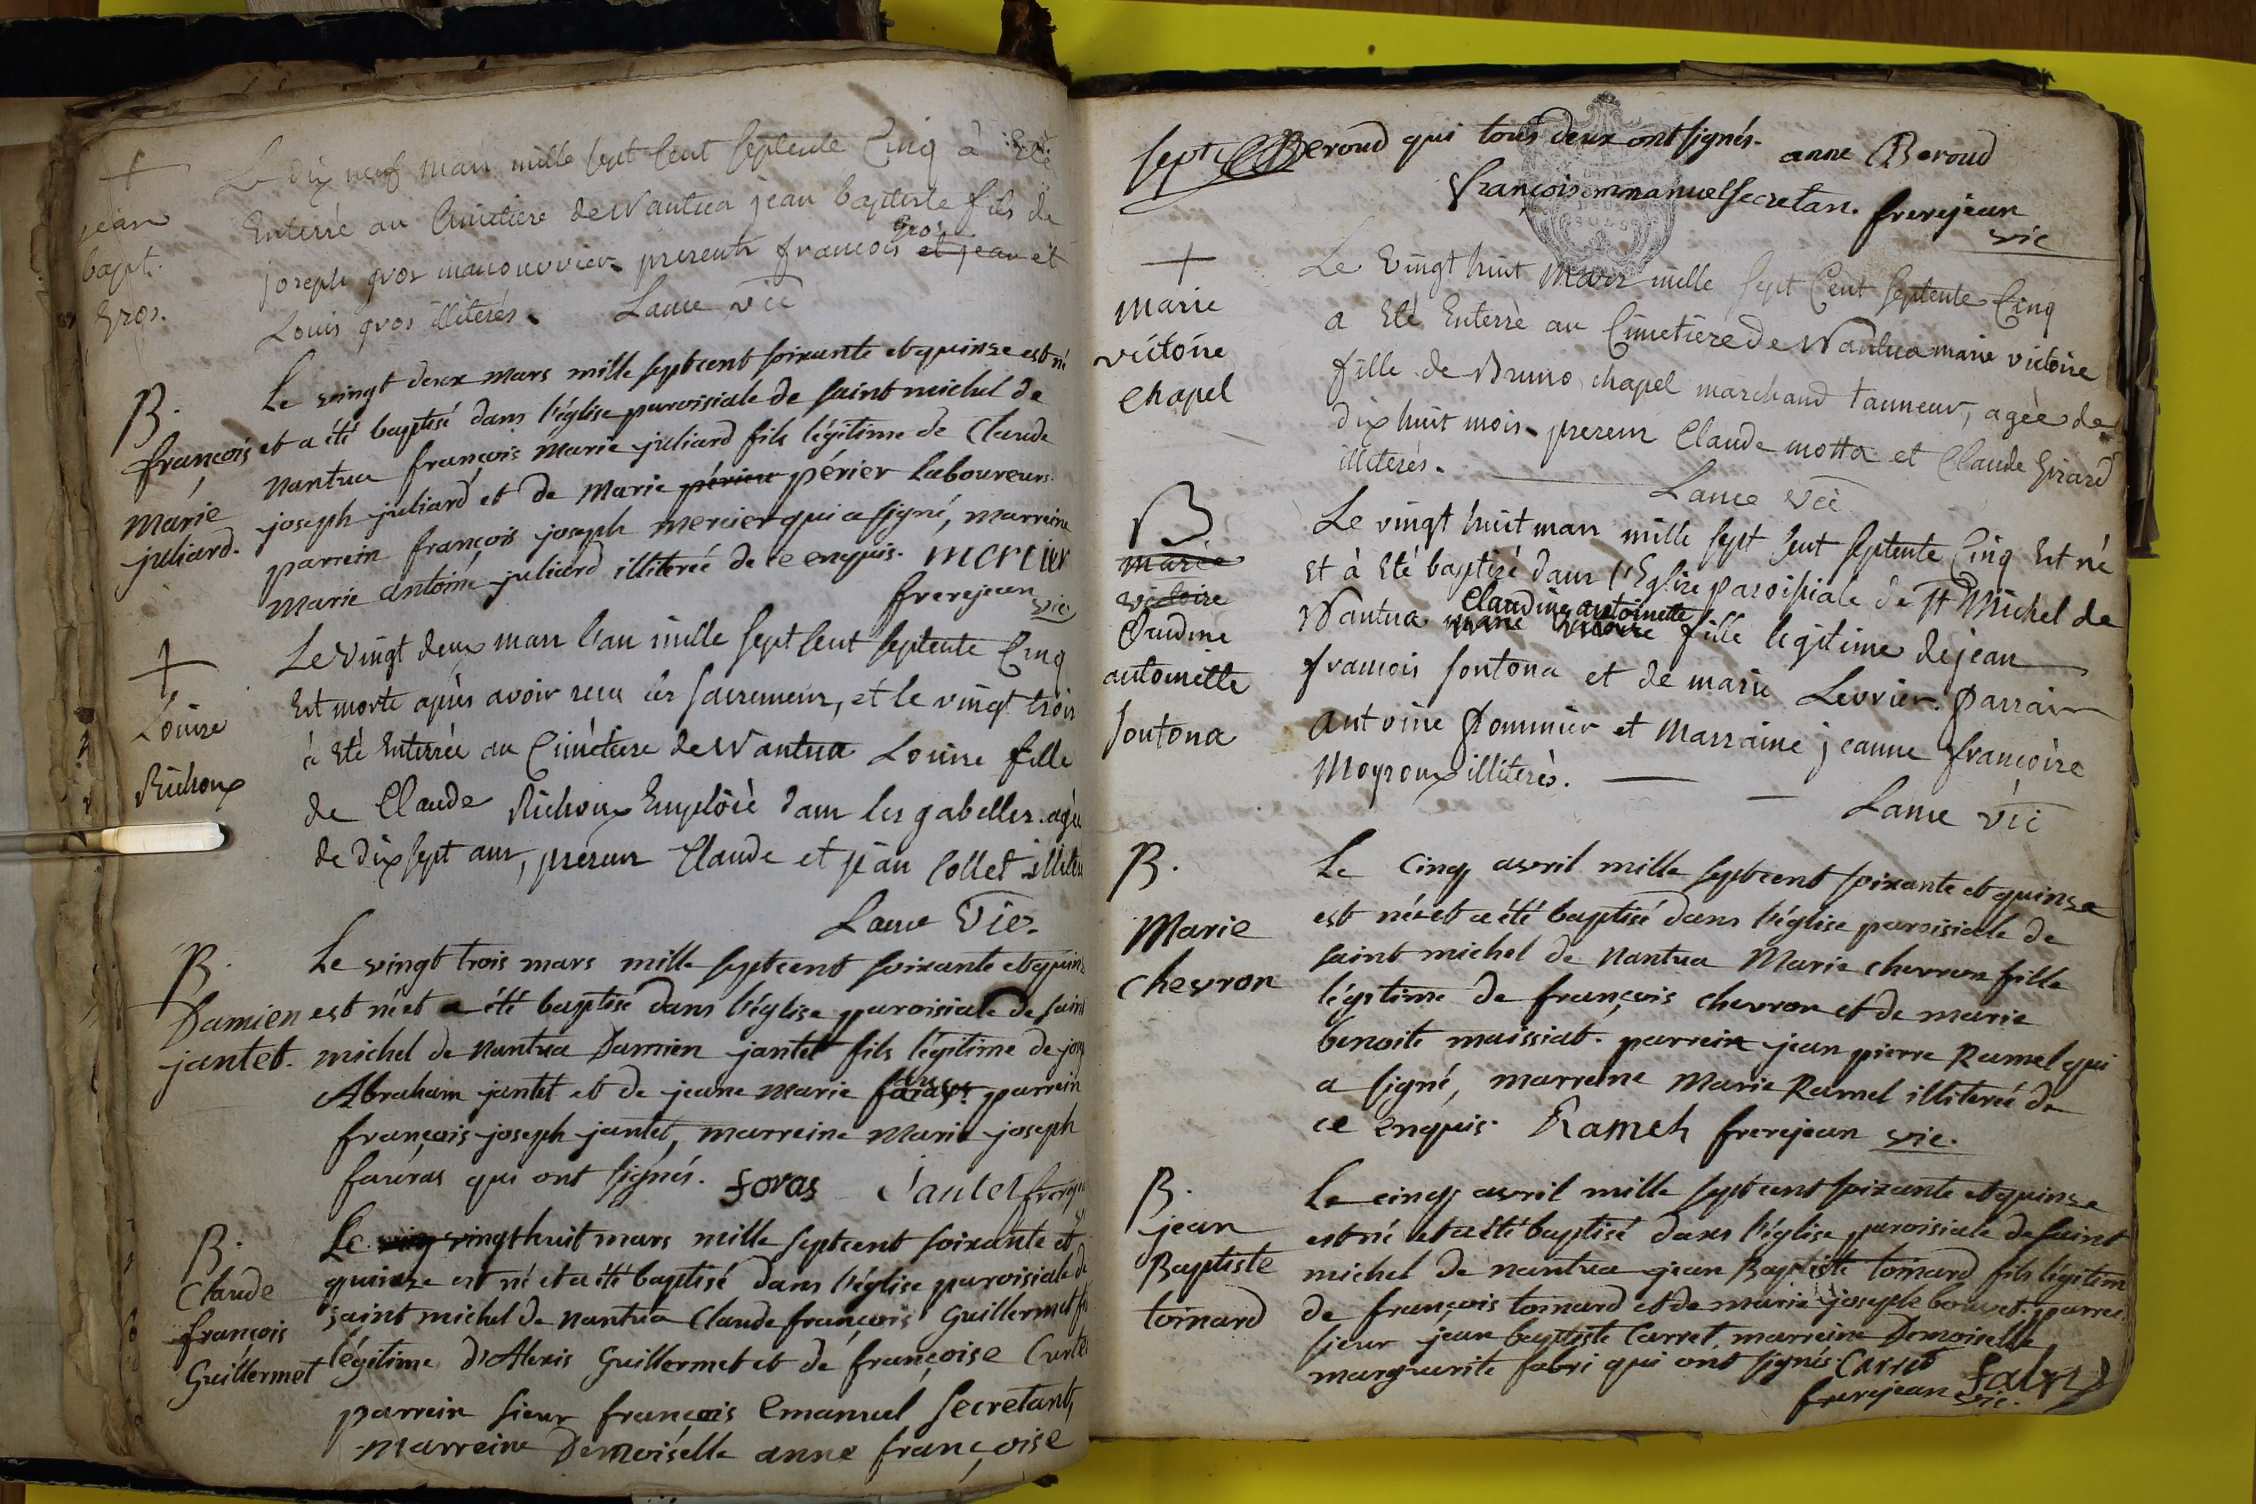 +
jean
bapt.
gros.
Le dix neuf mars mille sept Cent septente Cinq à Eté
Enterré au Cimetiere de Nantua jean baptiste fils de
joseph gros manouvrier presents francois gros et jean et
Louis gros illiterés. Lame vic
B.
françois
marie
juliard.
Le vingt deux mars mille sept cent soixante et quinze est né
et a été baptisé dans l'église paroisiale de saint michel de
nantua françois marie juliard fils légitime de Claude
joseph juliard et de marie périer périer laboureurs.
parrein françois joseph mercier qui a signé, marreine
marie antoine juliard illiterée de ce enquis. mercier
frerejean vic
+
Louise
Richoux
Le vingt deux mars l'an mille sept Cent septente Cinq
Est morte après avoir recu les sacremens, et le vingt trois
à Eté Enterrée au Cimétiere de Nantua Louise fille
de Claude Richoux Emploïé dans les gabelles. agée
de dix sept ans, presens Claude et jean Collet
Lame Vic.
B.
Damien
jantet.
Le vingt trois mars mille sept cent soixante et quinze
est né et a été baptisé dans l'église paroisiale de saint
michel de nantua Damien jantet fils légitime de
Abraham jantet et de jeane marie parrein
françois joseph jantet, marreine marie joseph
qui ont signés. foras Jantet
B.
Claude
françois
Guillermet
Le ving vingt huit mars mille sept cent soixante et
quinze est né et a été baptisé dans l'église paroisiale de
saint michel de nantua Claude françois Guillermet
légitime d'Alexis Guillermet et de françoise
parrein sieur françois emanuel secretant,
marreine Demoiselle anne françoise
sept Beroud qui tous deux ont signés. anne Beroud
françois emmanuel secretan. frerejean
vic
+
marie
victoire
chapel
Le Vingt huit Mars mille sept Cent septente Cinq
a Eté Enterrè au Cimetiere de Nantua marie victoire
fille de Bruno chapel marchand tanneur, agèe de
dix huit mois presens Claude motta et Claude Girard
illiterés.
Lame vic
B
marie
victoire
Claudine
antoinette
fontona
Le vingt huit mars mille sept Cent septente Cinq Est né
Et à Eté baptisé dans l'Eglise paroissiale de St Michel de
Claudine antoinette
Nantua marie victoire fille legitime de jean
francois fontona et de marie Levrier. Parrain
antoine Pommier et Marraine jeanne francoise
Moyroux illiterès.
Lame Vic
B.
Marie
chevron
Le cinq avril mille sept cent soixante et quinze
est née et a été baptisé dans l'église paroisiale de
saint michel de nantua Marie chevron fille
légitime de françois chevron et de marie
benoite maissiat. parrein jean pierre Ramel qui
a signé, marreine Marie Ramel illiterée de
ce enquis. Ramel frerejean vic.
B.
jean
Baptiste
toinard
Le cinq avril mille sept cent soixante et quinze
est né et a été baptisé dans l'église paroisiale de saint
michel de nantua jean Baptiste toinard fils légitim
de françois toinard et de marie joseple bouvet. parrei
sieur jean baptiste Carret, marreine Demoiselle
marguerite fabri qui ont signés. Carret Fabry
frerejean vic.